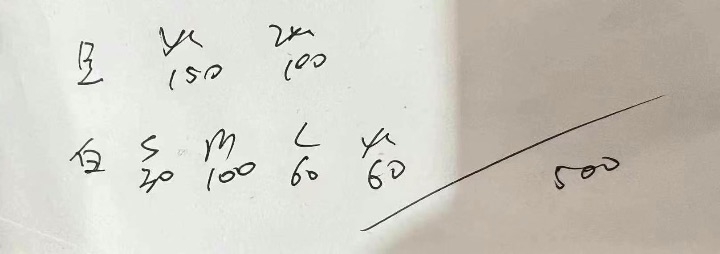 黑 XL 2XL
150 100
白 S M L XL
30 100 60 60 500